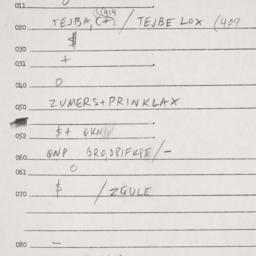 011
020 TEJBA, C+) / TEJBE LOX (409
030 $
031 +
040 O
050 ZUMERS+PRINKLAX
051
052 $+ QKN
060 QNP BRO,DPIFKPE/-
061 O
070 $ /ZGULE
080 -